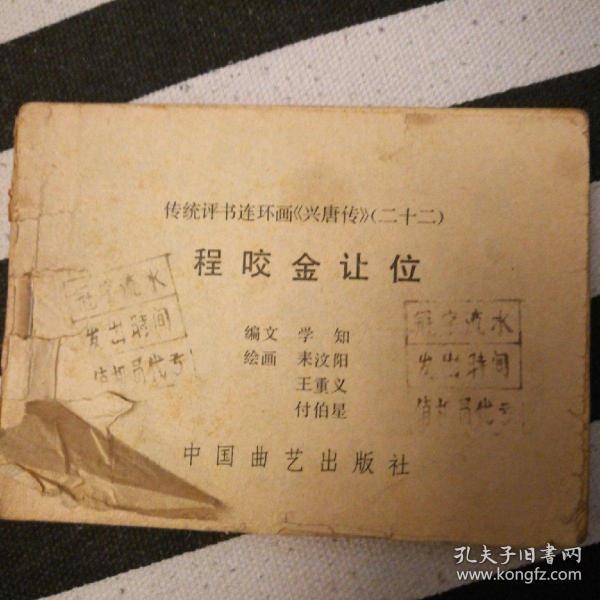 传统评书连环画《兴唐传》(二十二)
程咬金让位
编文 学知
绘画 来汶阳
王重义
付伯星
中国曲艺出版社
冠字流水
发出时间
值机员代号
冠字流水
发出时间
值机员代号
孔夫子旧書网
www.kongfz.com